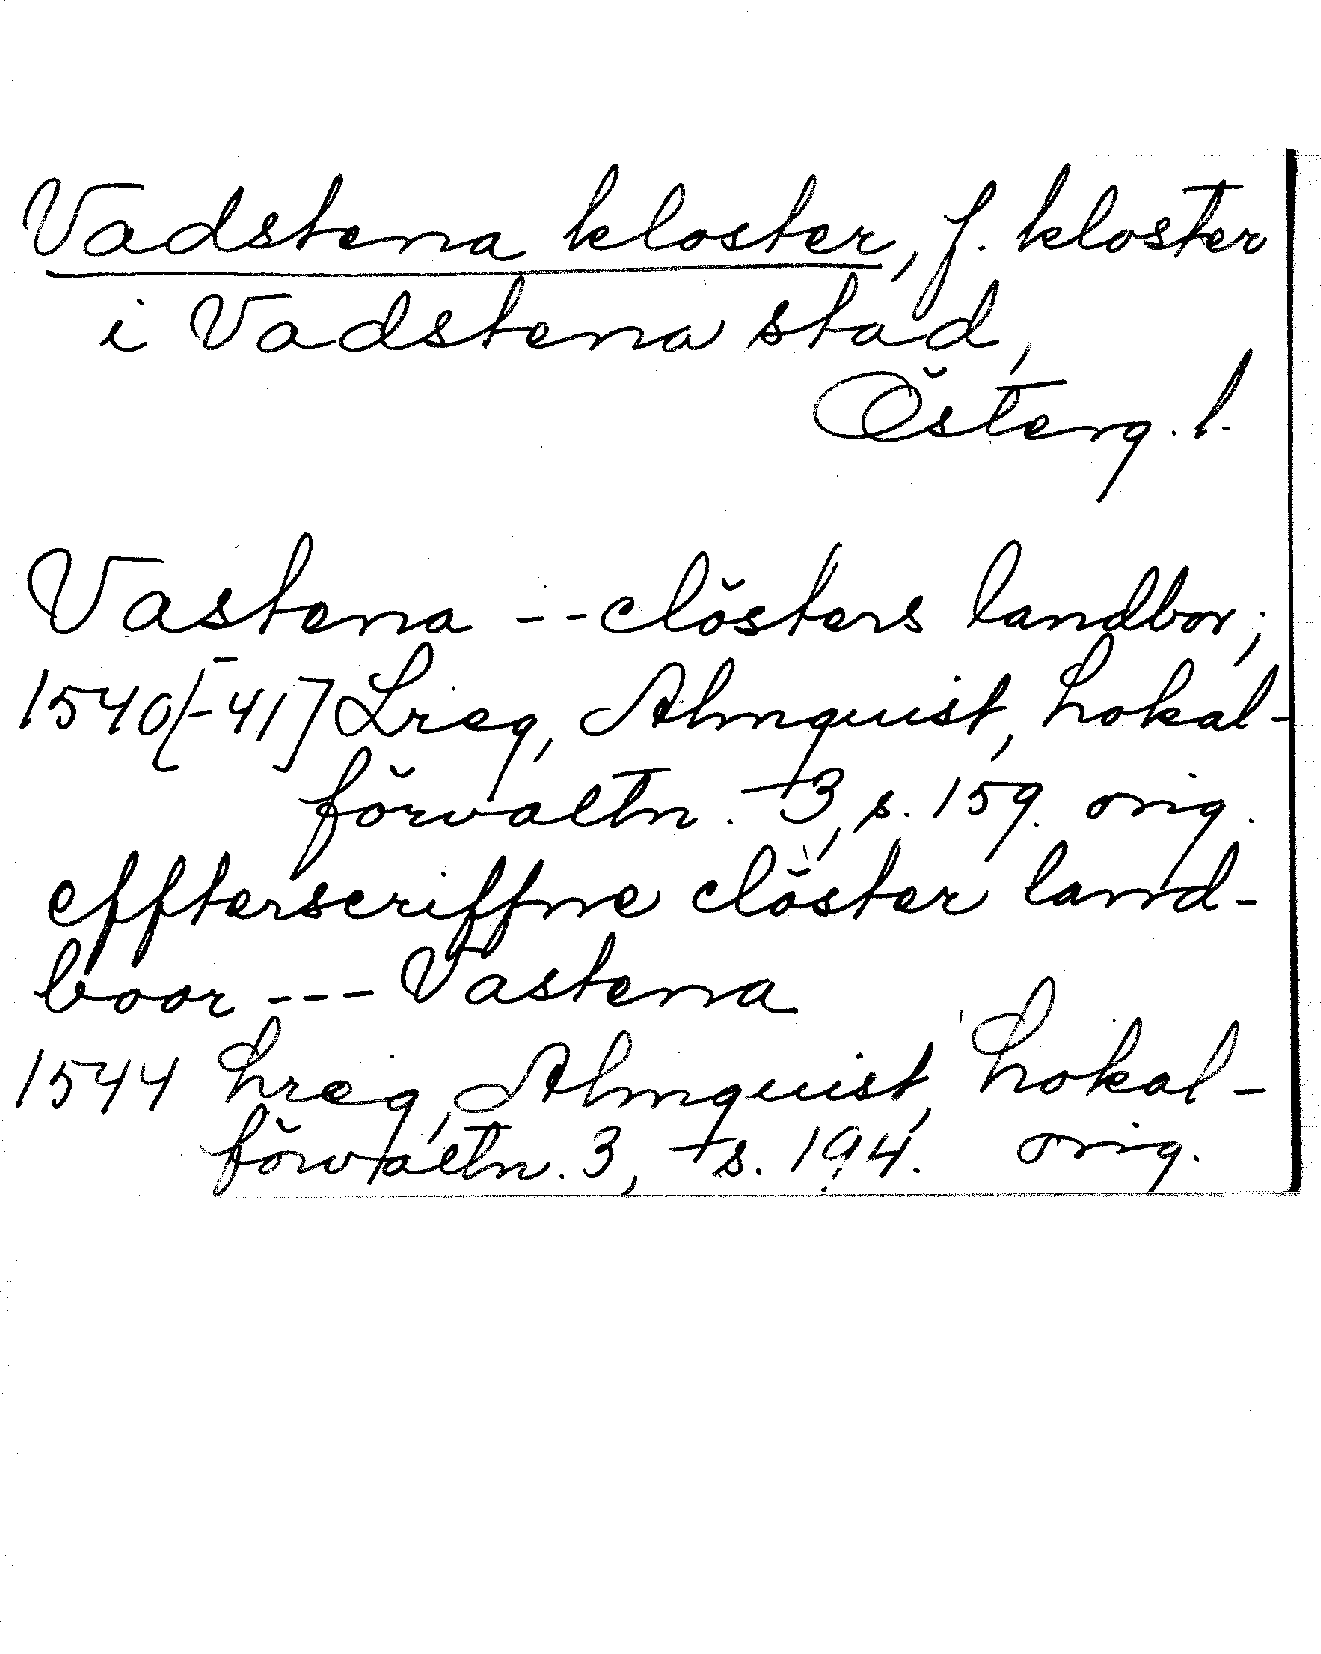 Vadstena kloster, f. kloster
i Vadstena stad,
Österg. l.
Vastena -- clösters landbor;
1540[-41] Lreg, Almquist, Lokal-
förvaltn. 3, s. 159. orig.
effterscriffne clöster land-
boor --- Vastena
1544 Lreg, Almquist, Lokal-
förvaltn. 3, s. 194. orig.